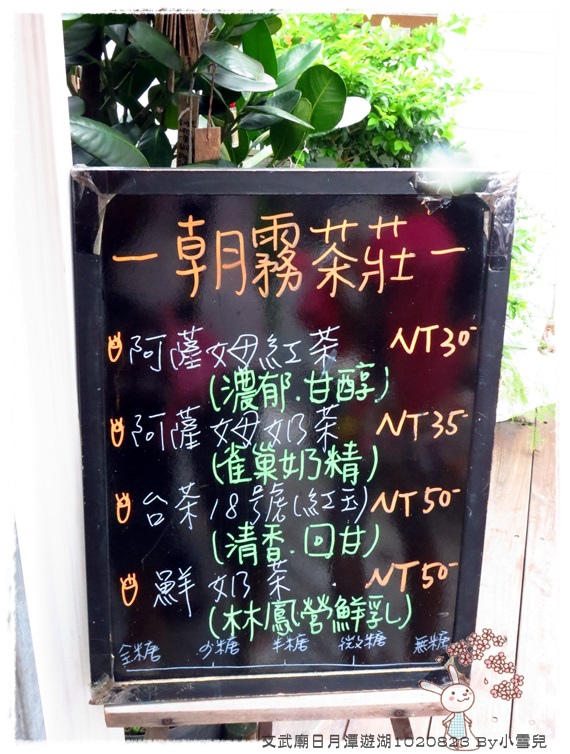 －朝霧茶莊－
阿薩姆紅茶 NT30-
(濃郁.甘醇)
阿薩姆奶茶 NT35-
(雀巢奶精)
台茶18號(紅玉) NT50-
(清香.回甘)
鮮奶茶 NT50-
(林鳳營鮮乳)
全糖 少糖 半糖 微糖 無糖
文武廟日月潭遊湖1020836 By小雪兒